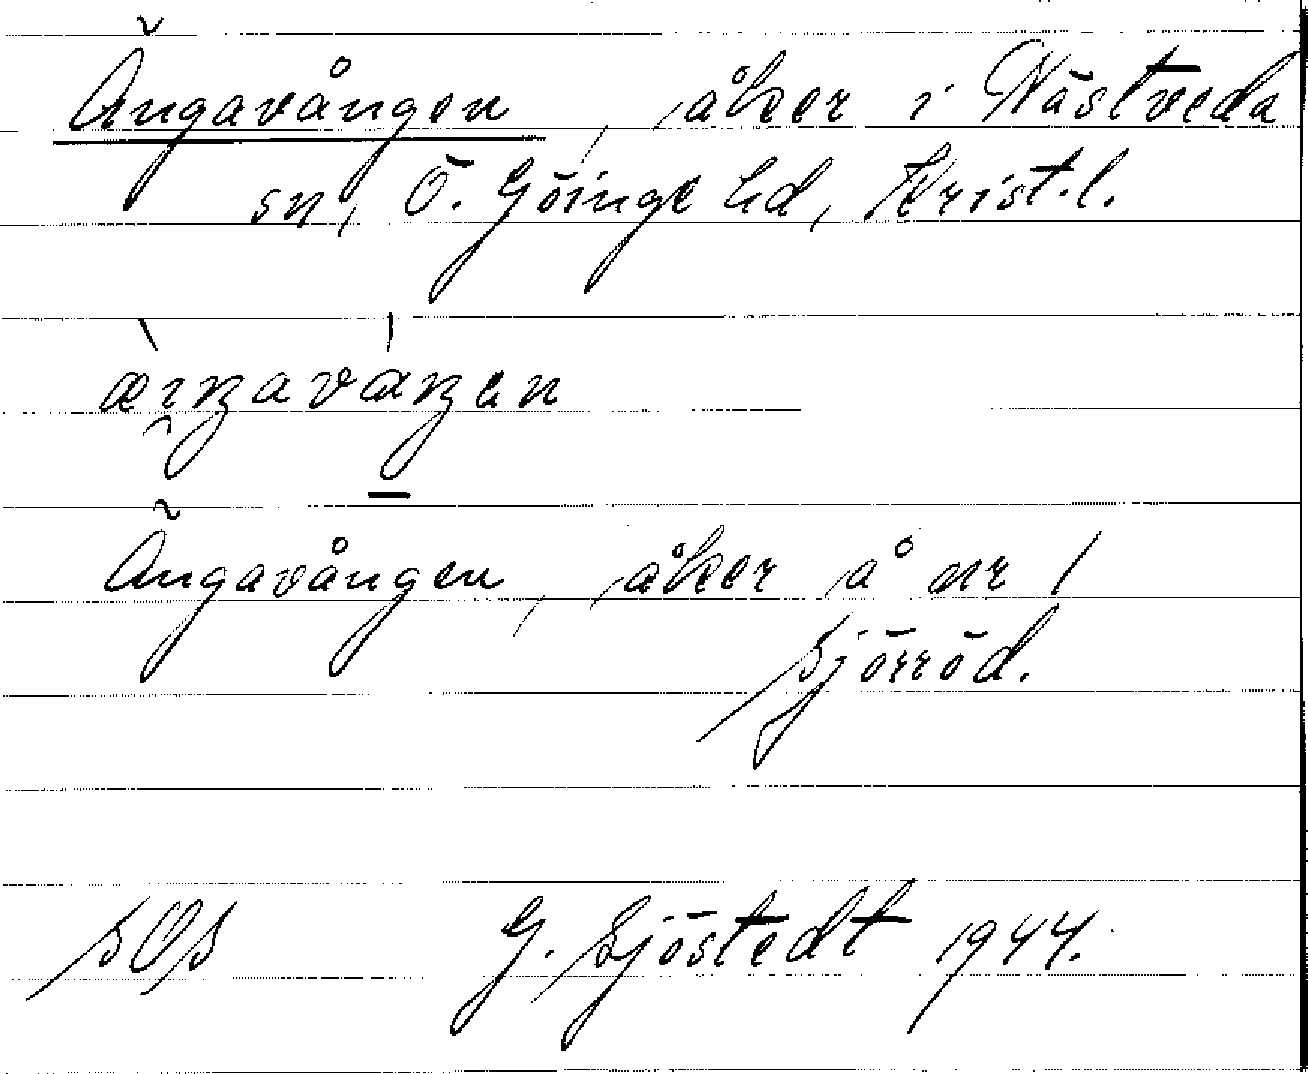 Ängavången, åker i Nåstveda
sn, Ö. Göinge hd, Krist.l.
æi̯ŋavàŋen
Ängavången, åker å nr 1
Sjöröd.
SOS G. Sjöstedt 1944.